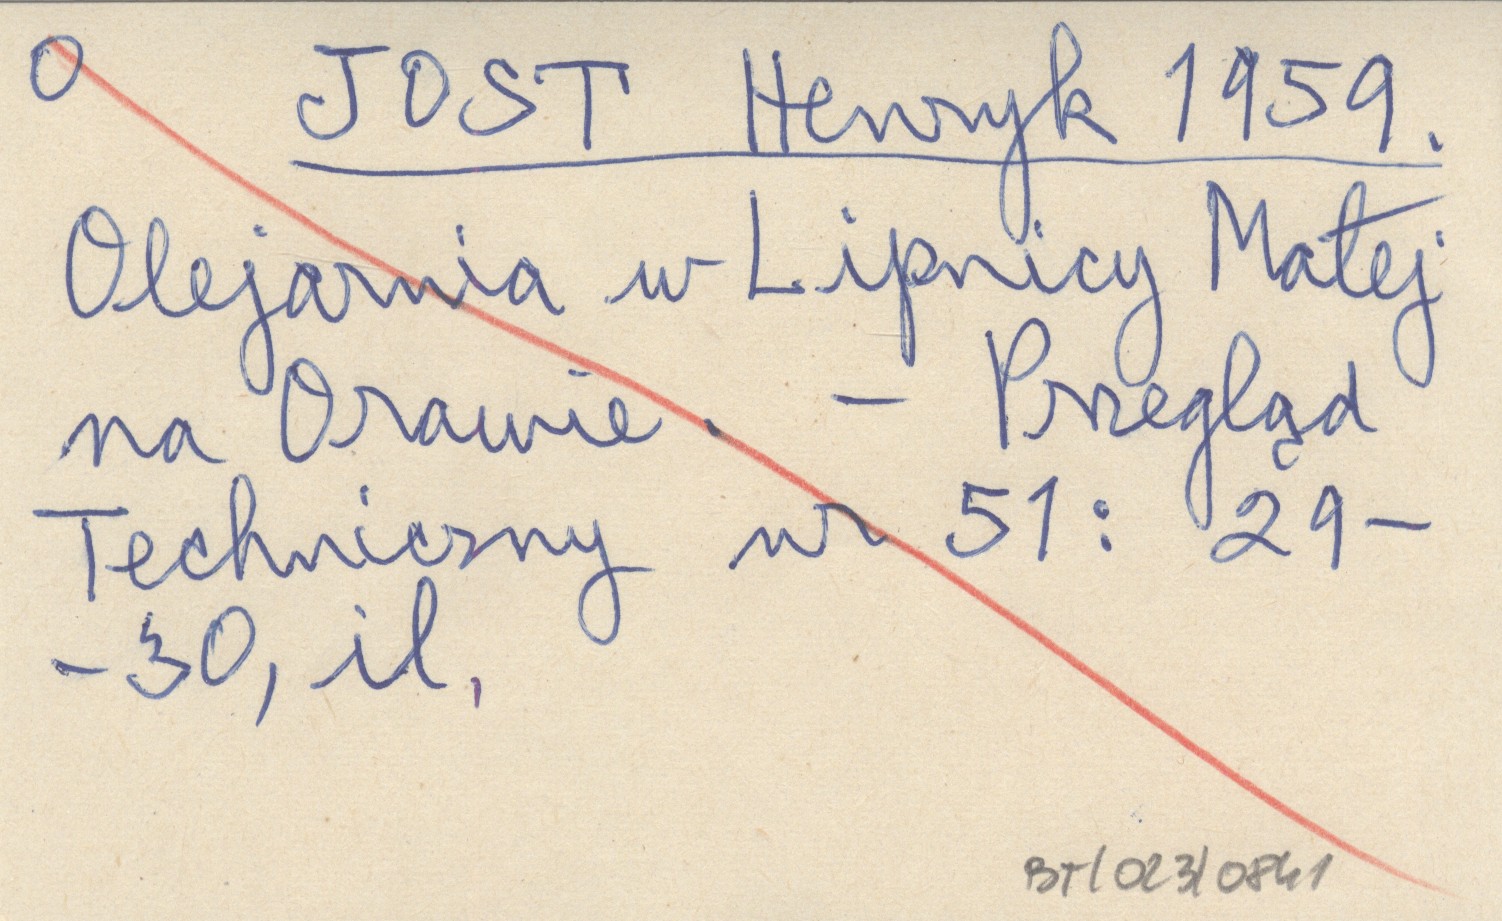 O JOST Henryk 1959.
Olejarnia w Lipnicy Małej
na Orawie. – Przegląd
Techniczny nr 51: 29–
-30, il.
BT/023/0841